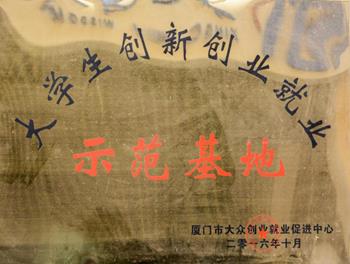 大学生创新创业就业
示范基地
厦门市大众创业就业促进中心
二零一六年十月